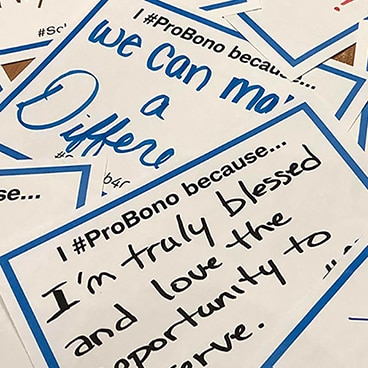 I #ProBono becau...
we can ma
a
Differe
se...
I #ProBono because...
I'm truly blessed
and love the
pportunity to
erve.